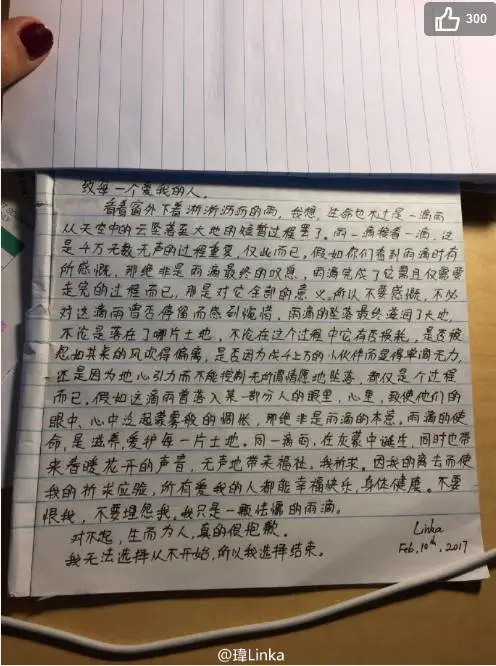 300
致每一个爱我的人。
看着窗外下着淅淅沥沥的雨，我想，生命也不过是一滴雨
从天空中的云坠落至大地的短暂过程罢了。雨一滴接着一滴，这
是千万无数无声的过程重复，仅此而已。假如你们看到雨滴时有
所感慨，那绝非是雨滴最终的叹息，雨滴完成了它需且仅需要
走完的过程而已，那是对它全部的意义。所以不要感慨，不必
对这滴雨曾否停留而感到惋惜，雨滴的坠落最终滋润了大地，
不论是落在了哪片土地，不论在这个过程中它有否损耗，是否被
忽如其来的风吹得偏离，是否因为成千上万的小伙伴而显得单调无力，
还是因为地心引力而不能控制无所谓情愿地坠落，都仅是个过程
而已。假如这滴雨曾落入某一部分人的眼里，心里，致使他们的
眼中、心中泛起蒙雾般的惆怅，那绝非是雨滴的本意。雨滴的使
命，是滋养，爱护每一片土地。同一滴雨，在灰蒙中诞生，同时也带
来春暖花开的声音，无声地带来福祉。我祈求。因我的离去而使
我的祈求应验，所有爱我的人都能幸福快乐，身体健康。不要
恨我，不要埋怨我，我只是一颗怯懦的雨滴。
对不起，生而为人，真的很抱歉。
我无法选择从不开始，所以我选择结束。
Linka
Feb, 10th, 2017
@瑋Linka